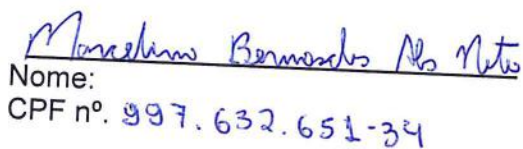 Marcelino Bernardes Neto
Nome:
CPF nº. 997.632.651-34